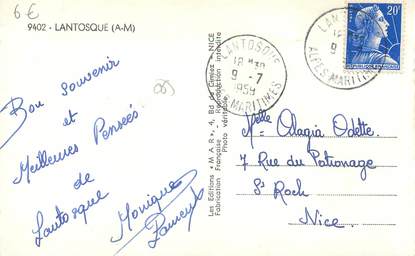 6 €
9402 - LANTOSQUE (A-M)
Bon Souvenir
et
Meilleures Pensées
de
Lantosque
Monique
Les Editions "MAR", 4, Bd de Cimiez - NICE
Fabrication Française - Reproduction interdite
Photo véritable
LANTOSQUE
18H30
9 -7
1959
ALPES MARITIMES
LANTOSQUE
18H30
9
ALPES MARITIMES
20F
Melle Alagia Odette.
7 Rue du Patronage
St Roch
Nice.